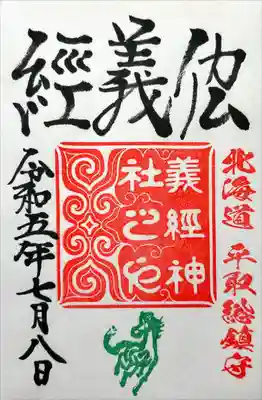 北海道 平取総鎮守
義經
義經神
社之印
令和五年七月八日